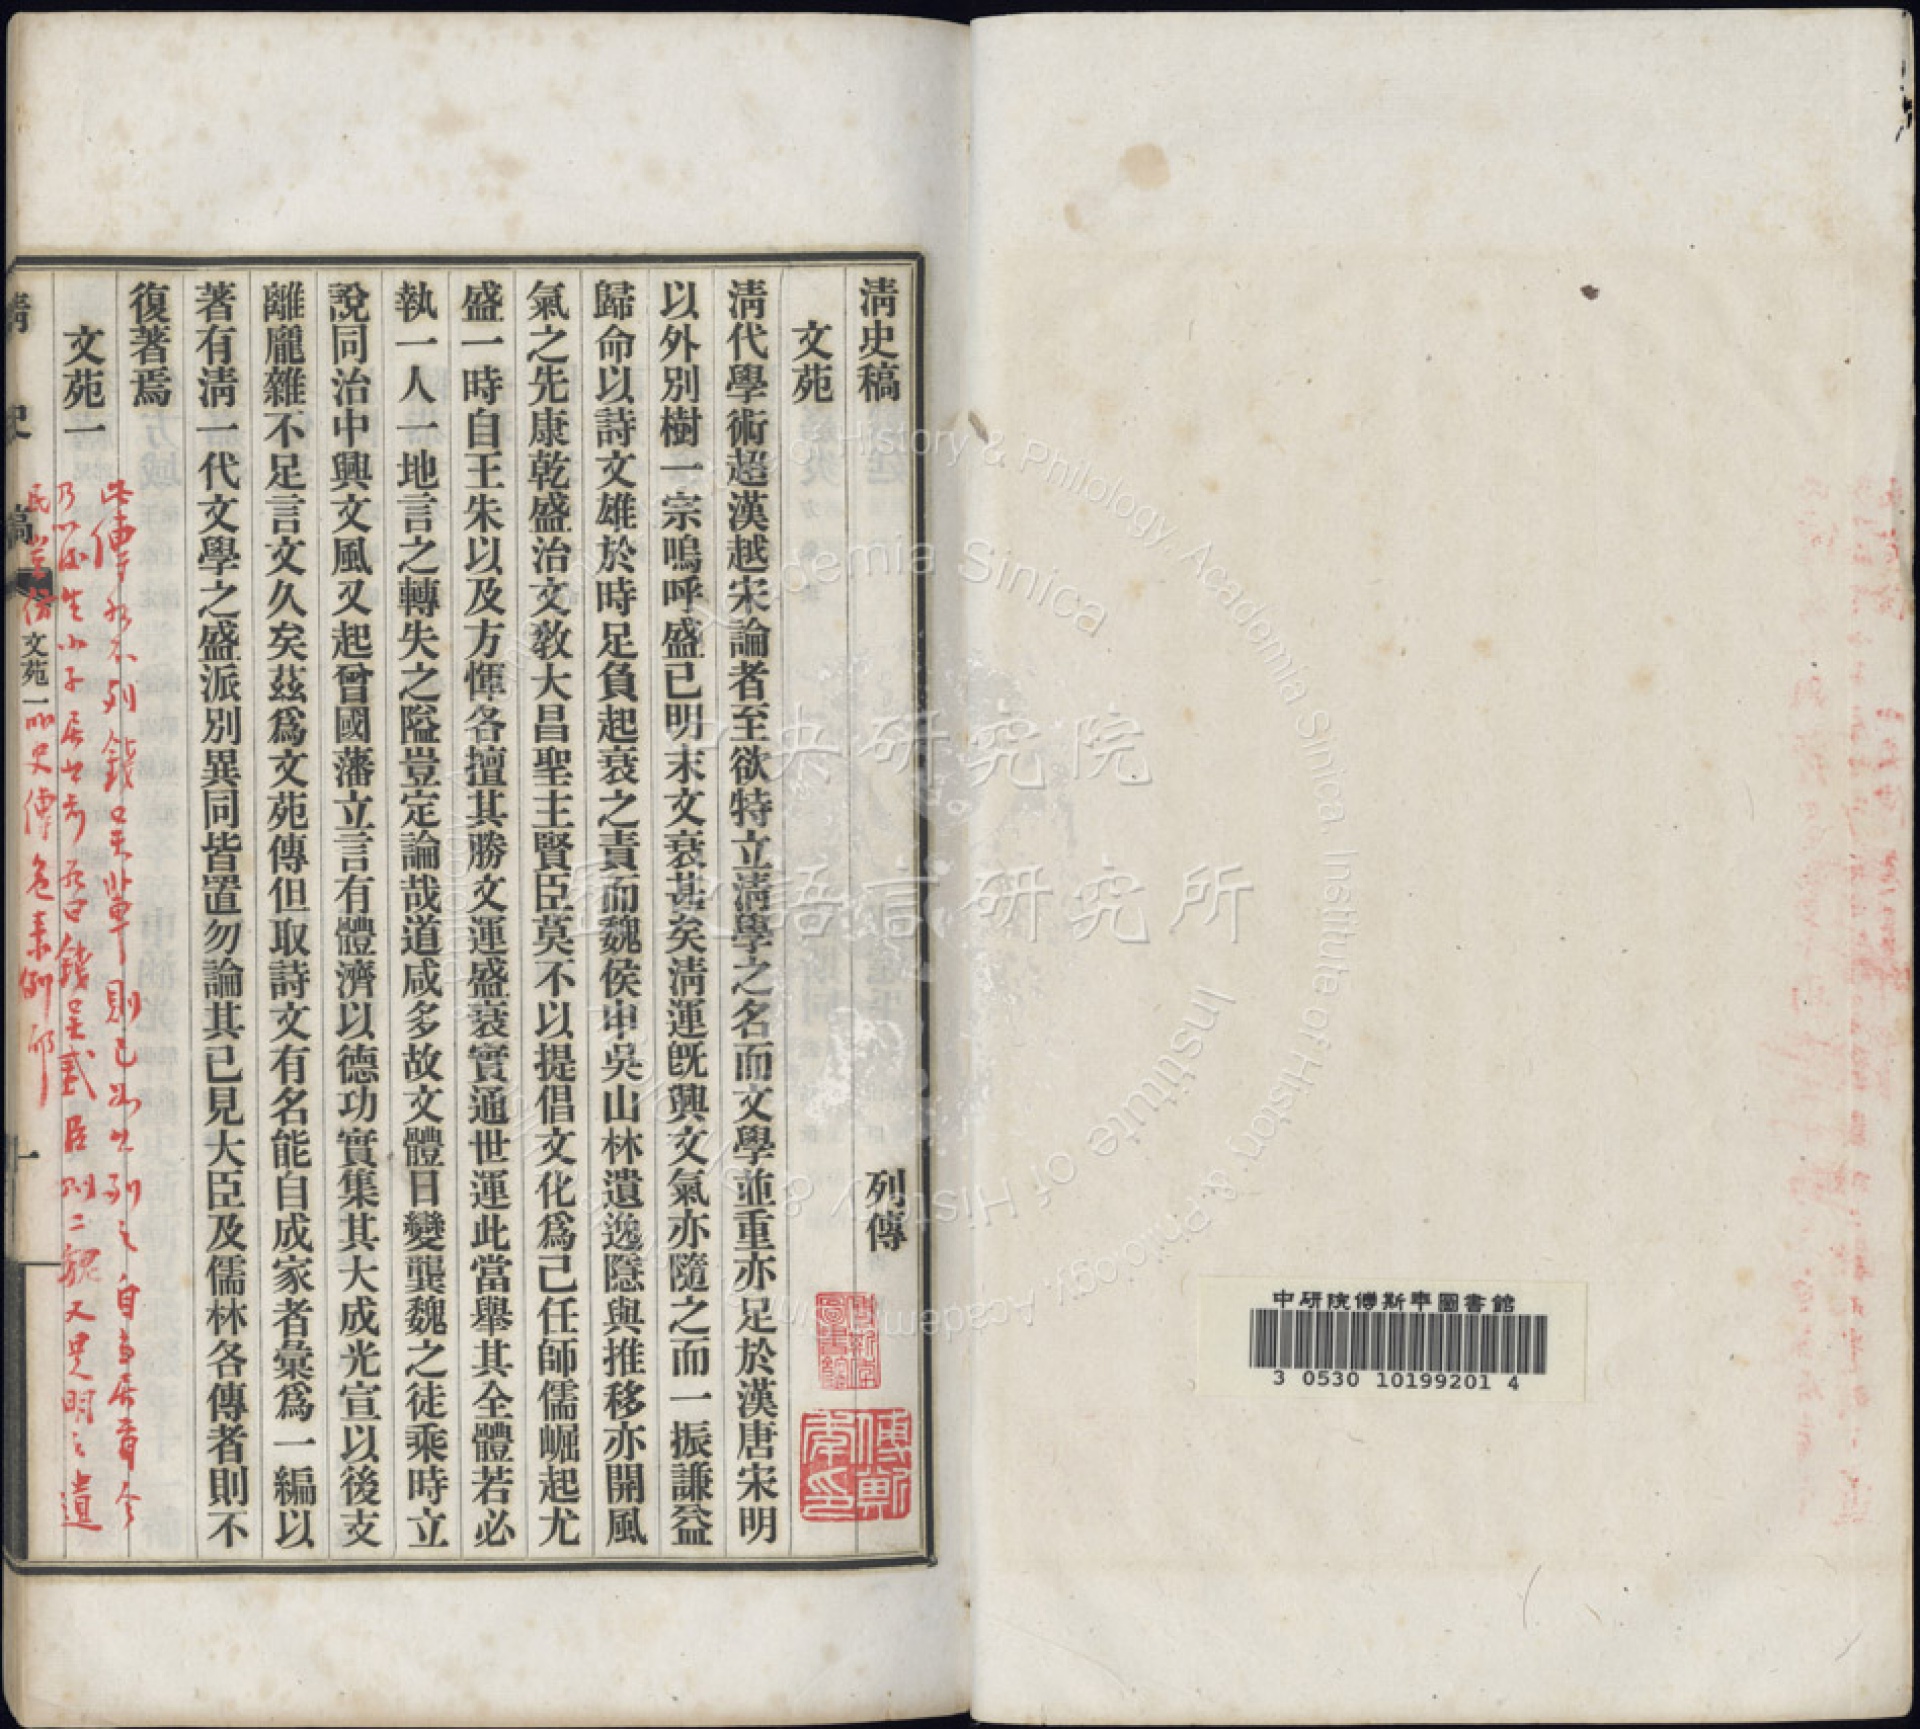 清史稿　列傳
文苑
清代學術超漢越宋論者至欲特立清學之名而文學並重亦足於漢唐宋明
以外別樹一宗嗚呼盛已明末文衰甚矣清運既興文氣亦隨之而一振謙益
歸命以詩文雄於時足負起衰之責而魏侯申吳山林遺逸隱與推移亦開風
氣之先康乾盛治文教大昌聖主賢臣莫不以提倡文化爲己任師儒崛起尤
盛一時自王朱以及方惲各擅其勝文運盛衰實通世運此當舉其全體若必
執一人一地言之轉失之隘豈定論哉道咸多故文體日變龔魏之徒乘時立
說同治中興文風又起曾國藩立言有體濟以德功實集其大成光宣以後支
離龐雜不足言文久矣茲爲文苑傳但取詩文有名能自成家者彙爲一編以
著有清一代文學之盛派別異同皆置勿論其已見大臣及儒林各傳者則不
復著焉
文苑一
此傳如不列錢吳輩則已如列之自當居首今
乃以小子居首錢吳貳臣則二魏又是明之遺
民
清史稿
文苑一
一
中央研究院
歷史語言研究所
Institute of History & Philology, Academia Sinica
中研院傅斯年圖書館
3 0530 10199201 4
傅斯年圖書館
傅斯年印